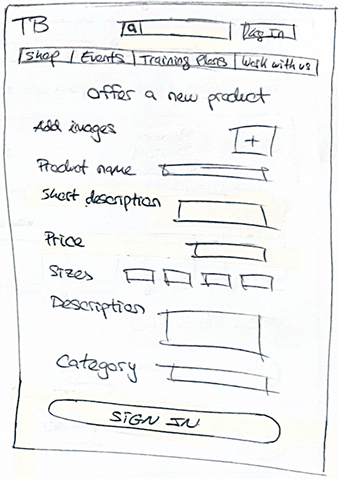 TB Log In
Shop Events Training Plans Work with us
Offer a new product
Add images +
Product name
Short description
Price
Sizes
Description
Category
SIGN IN